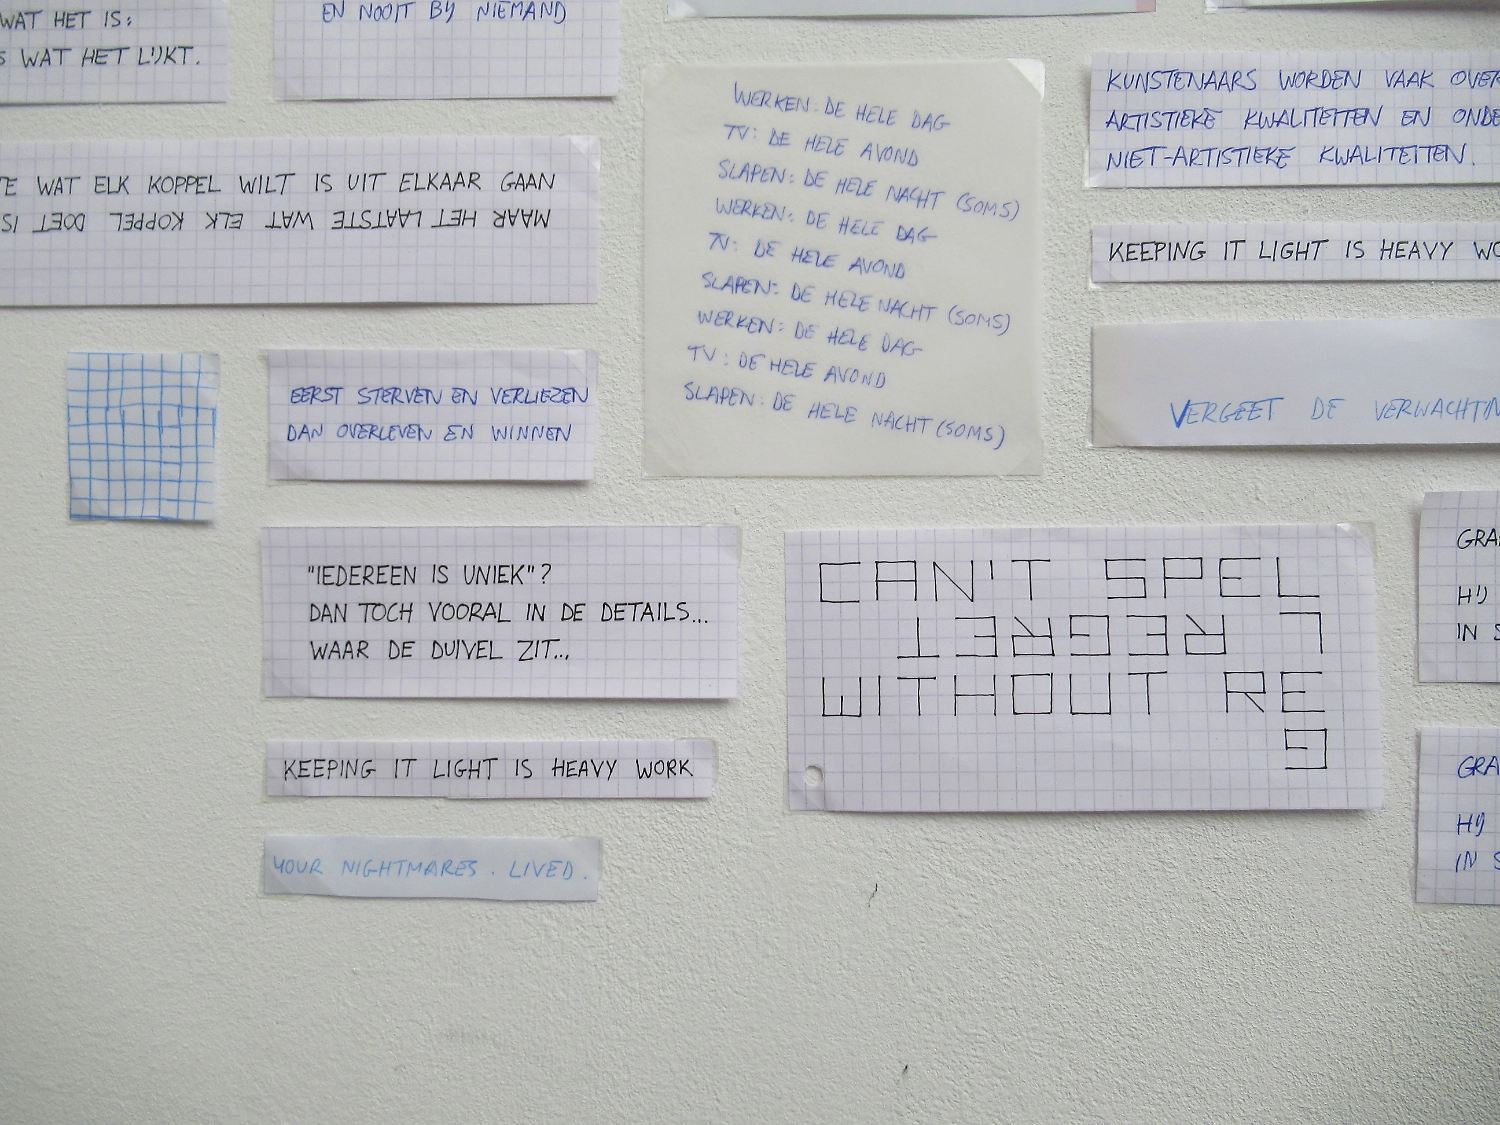 WAT HET IS:
WAT HET LIJKT.
EN NOOIT BIJ NIEMAND
WAT ELK KOPPEL WILT IS UIT ELKAAR GAAN
MAAR HET LAATSTE WAT ELK KOPPEL DOET IS
EERST STERVEN EN VERLIEZEN
DAN OVERLEVEN EN WINNEN
"IEDEREEN IS UNIEK"?
DAN TOCH VOORAL IN DE DETAILS...
WAAR DE DUIVEL ZIT...
KEEPING IT LIGHT IS HEAVY WORK
YOUR NIGHTMARES. LIVED.
WERKEN: DE HELE DAG
TV: DE HELE AVOND
SLAPEN: DE HELE NACHT (SOMS)
WERKEN: DE HELE DAG
TV: DE HELE AVOND
SLAPEN: DE HELE NACHT (SOMS)
WERKEN: DE HELE DAG
TV: DE HELE AVOND
SLAPEN: DE HELE NACHT (SOMS)
CAN'T SPEL
L REGRET
WITHOUT RE
G
KUNSTENAARS WORDEN VAAK OVER
ARTISTIEKE KWALITEITEN EN ONDE
NIET-ARTISTIEKE KWALITEITEN.
KEEPING IT LIGHT IS HEAVY WO
VERGEET DE VERWACHTIN
GRA
HIJ
IN S
GRA
HIJ
IN S